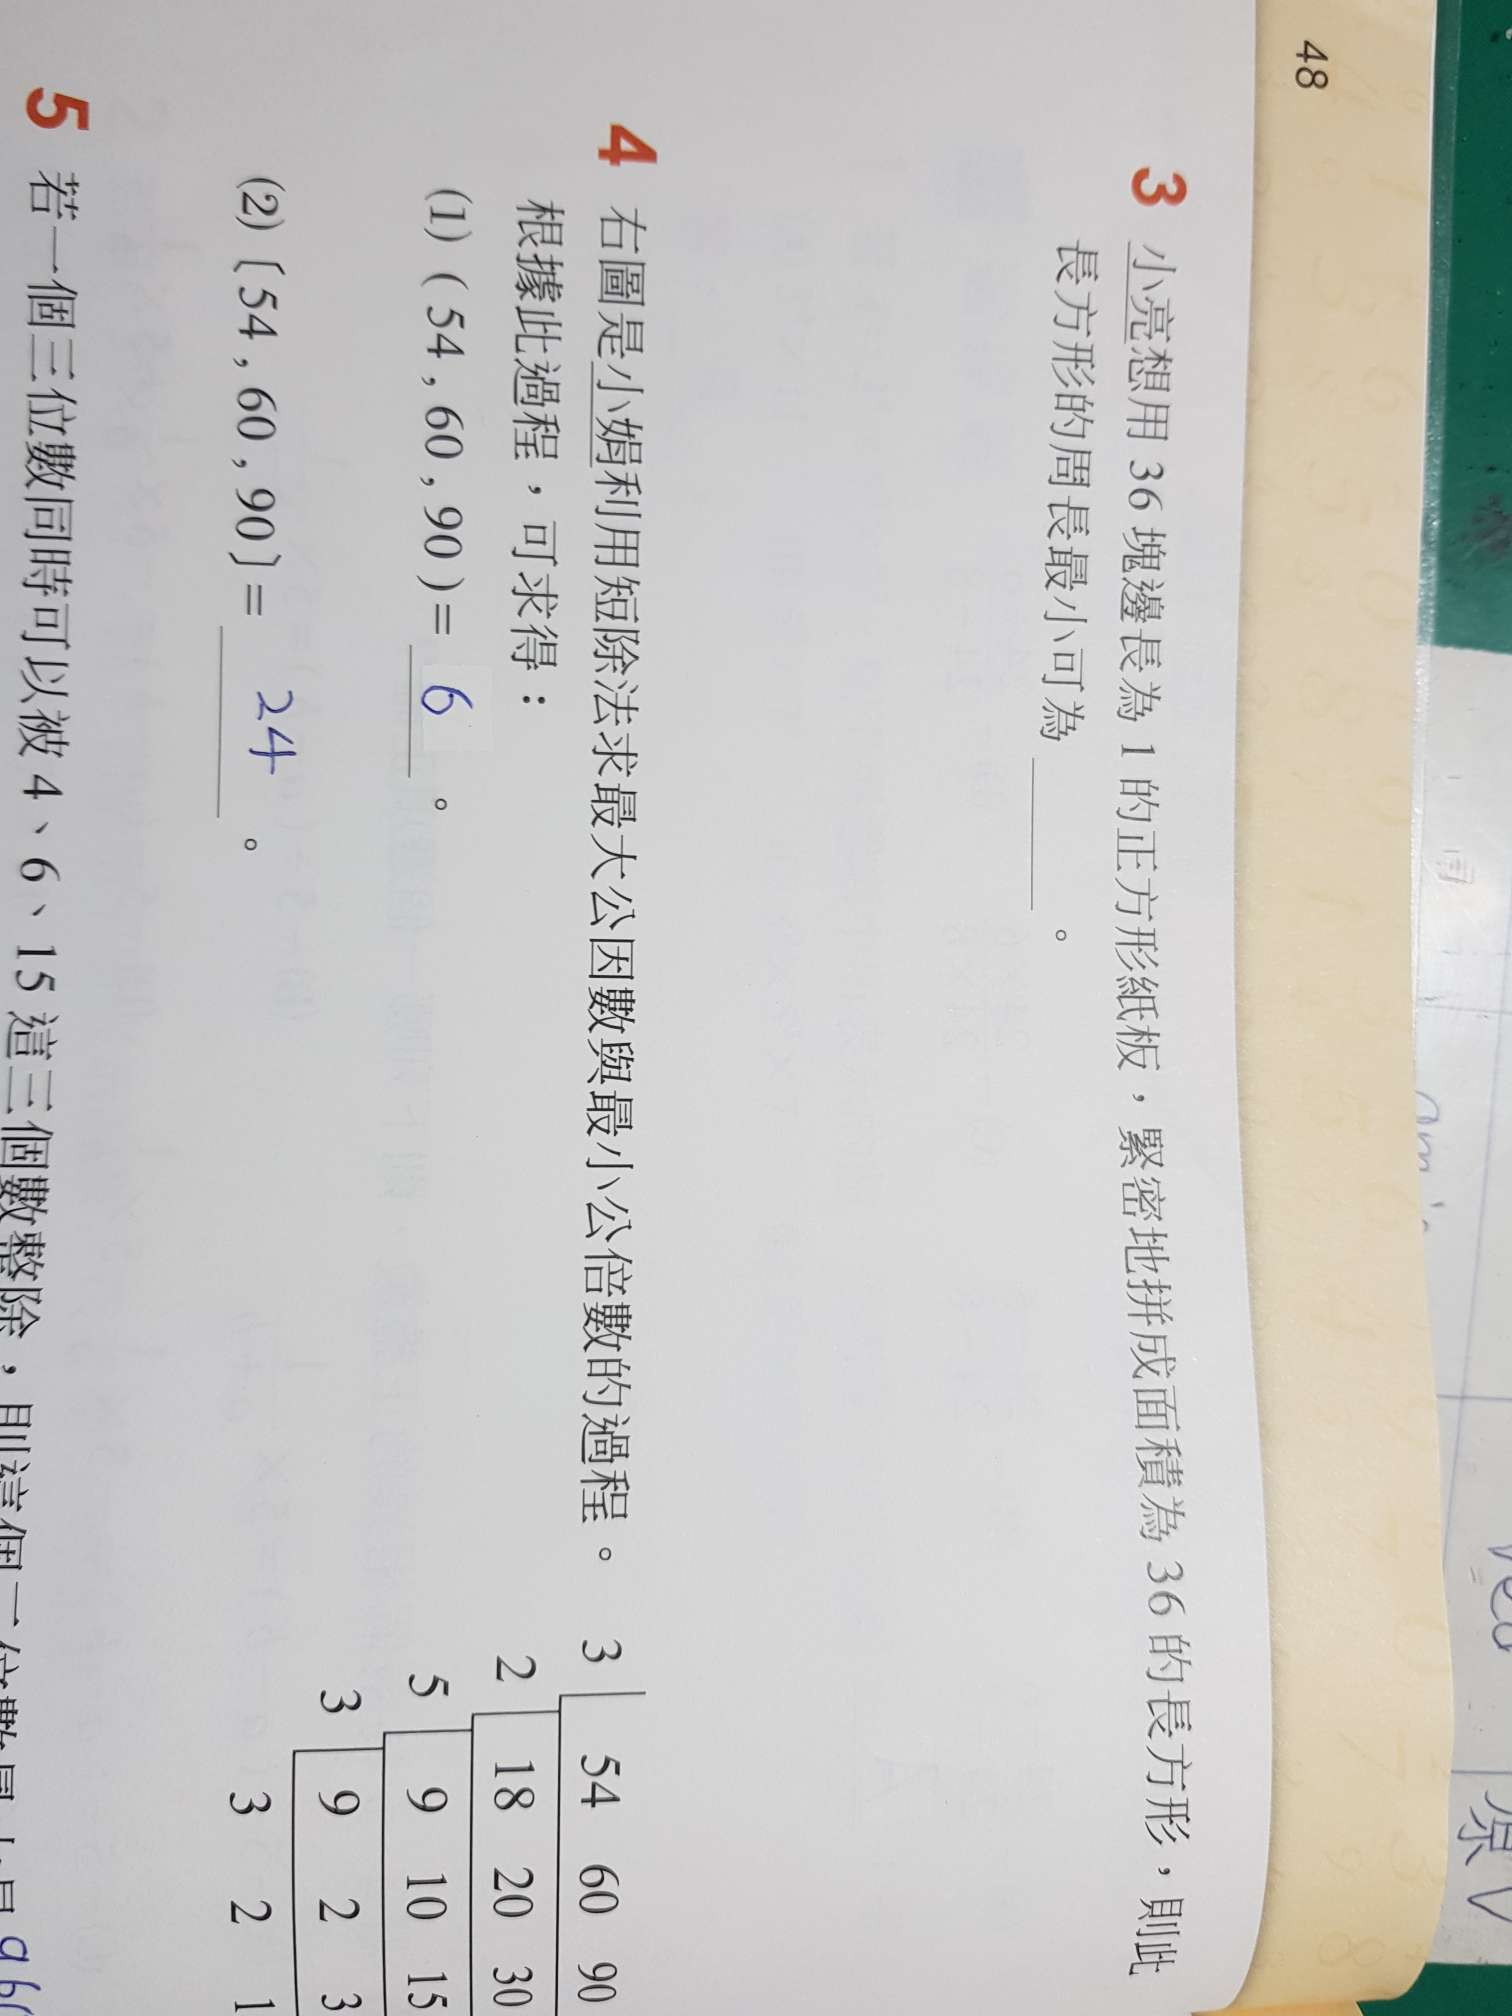 48
3 小亮想用 36 塊邊長為 1 的正方形紙板，緊密地拼成面積為 36 的長方形，則此
長方形的周長最小可為 。
4 右圖是小娟利用短除法求最大公因數與最小公倍數的過程。
根據此過程，可求得：
(1) ( 54 , 60 , 90 ) = 6 。
(2) 〔54 , 60 , 90〕= 24 。
3 54 60 90
2 18 20 30
5 9 10 15
3 9 2 3
3 2 1
5 若一個三位數同時可以被 4、6、15 這三個數整除，則這個三位數最大是 960